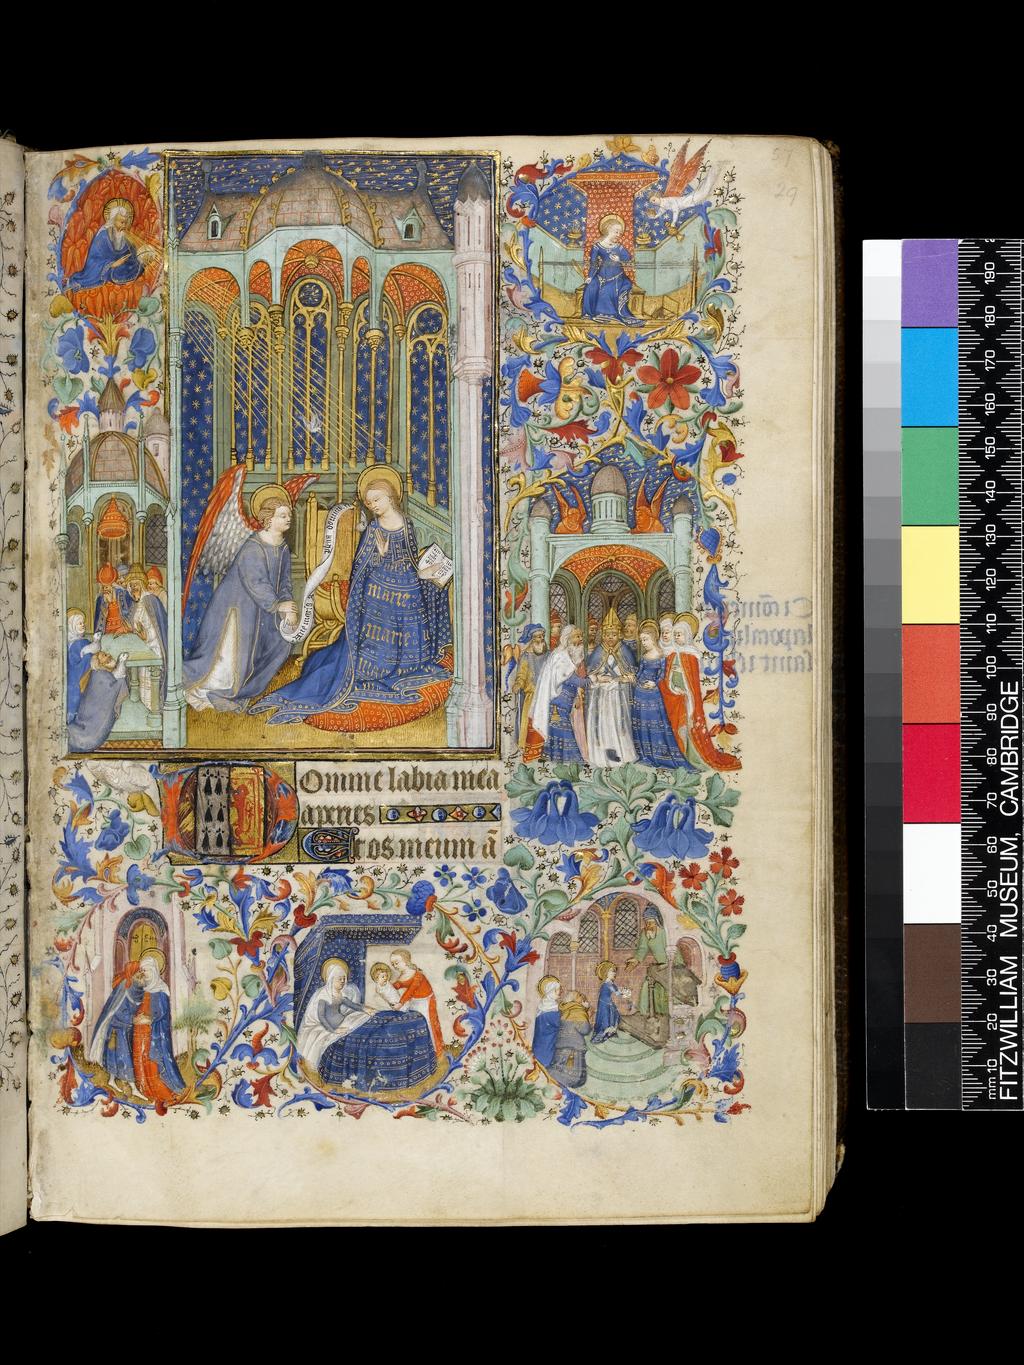 51
29
marie
marie
Domine labia mea
aperies
Et os meum a
190
180
170
160
150
140
130
120
110
100
90
80
70
60
50
40
30
20
mm10
FITZWILLIAM MUSEUM, CAMBRIDGE